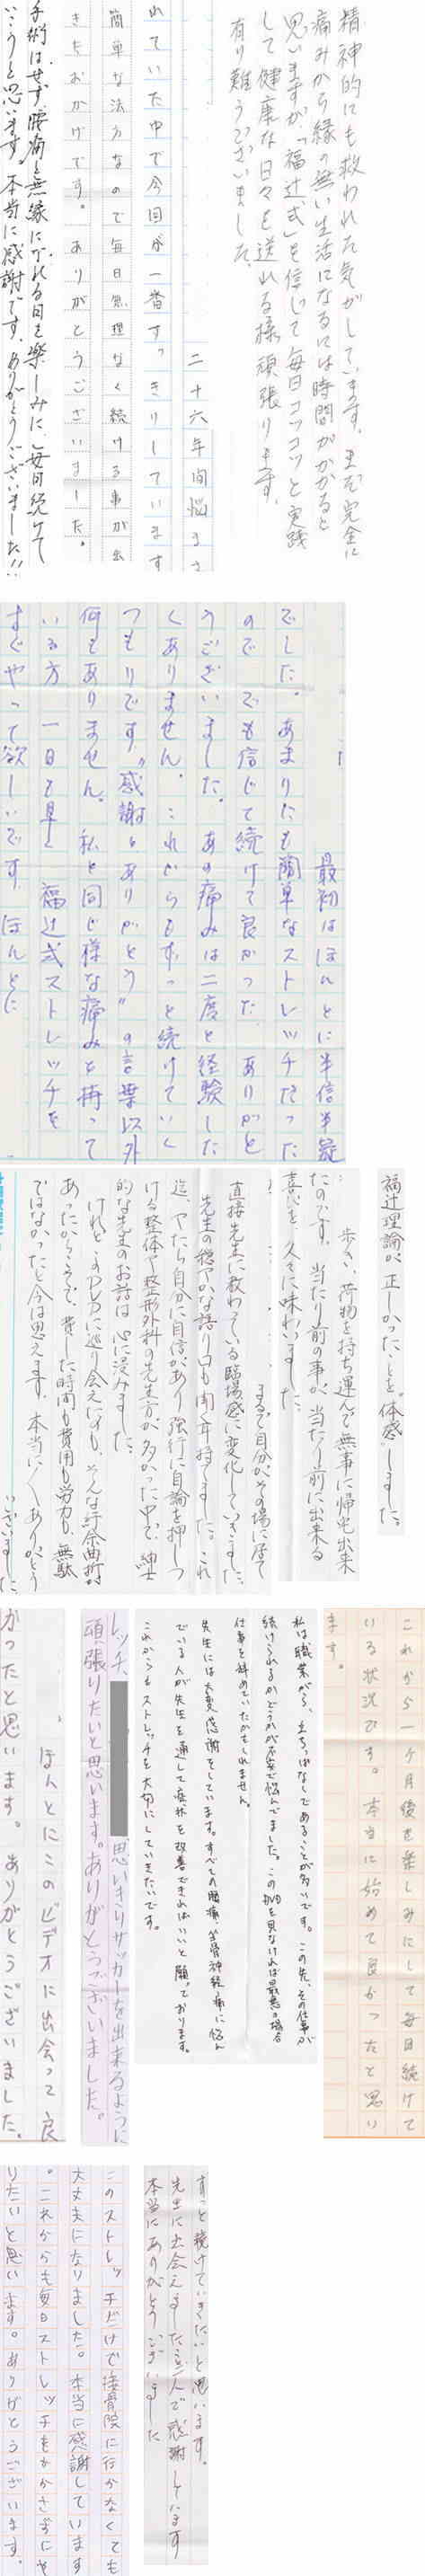 精神的にも救われた気がしています。まだ完全に
痛みから縁の無い生活になるには時間がかかると
思いますが、「福辻式」を信じて毎日コツコツと実践
して健康な日々を送れる様頑張ります。
有り難うございました。
二十六年間悩まさ
れていた中で今回が一番すっきりしています
簡単な法方なので毎日無理なく続ける事が出
きたおかげです。ありがとうございました。
手術はせず、腰痛と無縁になれる日を楽しみに、毎日続けて
いこうと思います。本当に感謝です。ありがとうございました!!
最初はほんとに半信半疑
でした。あまりにも簡単なストレッチだった
ので でも信じて続けて良かった ありがと
うございました。あの痛みは二度と経験した
くありません。これからもずっと続けていく
つもりです。"感謝とありがとう"の言葉以外
何もありません。私と同じ様な痛みを持って
いる方 一日も早く 福辻式ストレッチを
すぐやって欲しいです ほんとに
福辻理論が、正しかったことを"体感"しました。
歩き、荷物を持ち運んで無事に帰宅出来
たのです。当たり前の事が、当たり前に出来る
喜びを、久々に味わいました。
まるで自分がその場に居て
直接先生に教わっている臨場感に変化していきました。
先生の穏やかな語り口も聞く耳持てました。これ
迄、やたら自分に自信があり強行に自論を押しつ
ける整体や整形外科の先生方が多かった中で、紳士
的な先生のお話は心に浸みました。
けれど、このDVDに巡り会えたのも、そんな紆余曲折が
あったからこそで、費した時間も費用も労力も、無駄
ではなかったと今は思えます。本当に〱ありがとう
ございました
これから一ヶ月後を楽しみにして毎日続けて
いる状況です。本当に始めて良かったと思い
ます。
私は職業がら、立ちっぱなしであることが多いです。この先、その仕事が
続けられるかどうかが不安で悩んでました。このDVDを見なければ最悪の場合
仕事を辞めていたかもしれません。
先生には大変感謝をしています。すべての腰痛、坐骨神経痛に悩ん
でいる人が先生を通して症状を改善できればいいと願っております。
これからもストレッチを大切にしていきたいです。
レッチ、
思いきりサッカーを出来るように
頑張りたいと思います。ありがとうございました。
ほんとにこのビデオに出会って良
かったと思います。ありがとうございました。
ずっと続けていきたいと思います。
先生に出会えました事で感謝しています
本当にありがとうございました
このストレッチだけで接骨院に行かなくても
大丈夫になりました。本当に感謝しています
。これからも毎日ストレッチをかかさずにや
りたいと思います。ありがとうございます。